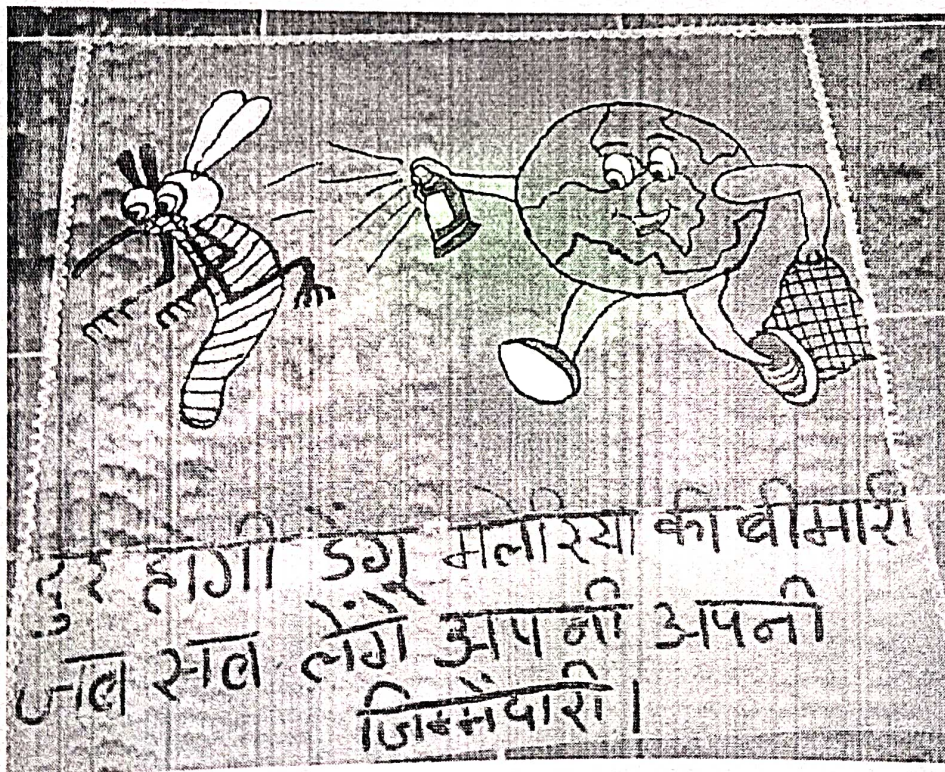 दुर होगी डेंगू मलेरिया की बीमारी
जब सब लेंगे अपनी अपनी
जिम्मेदारी।